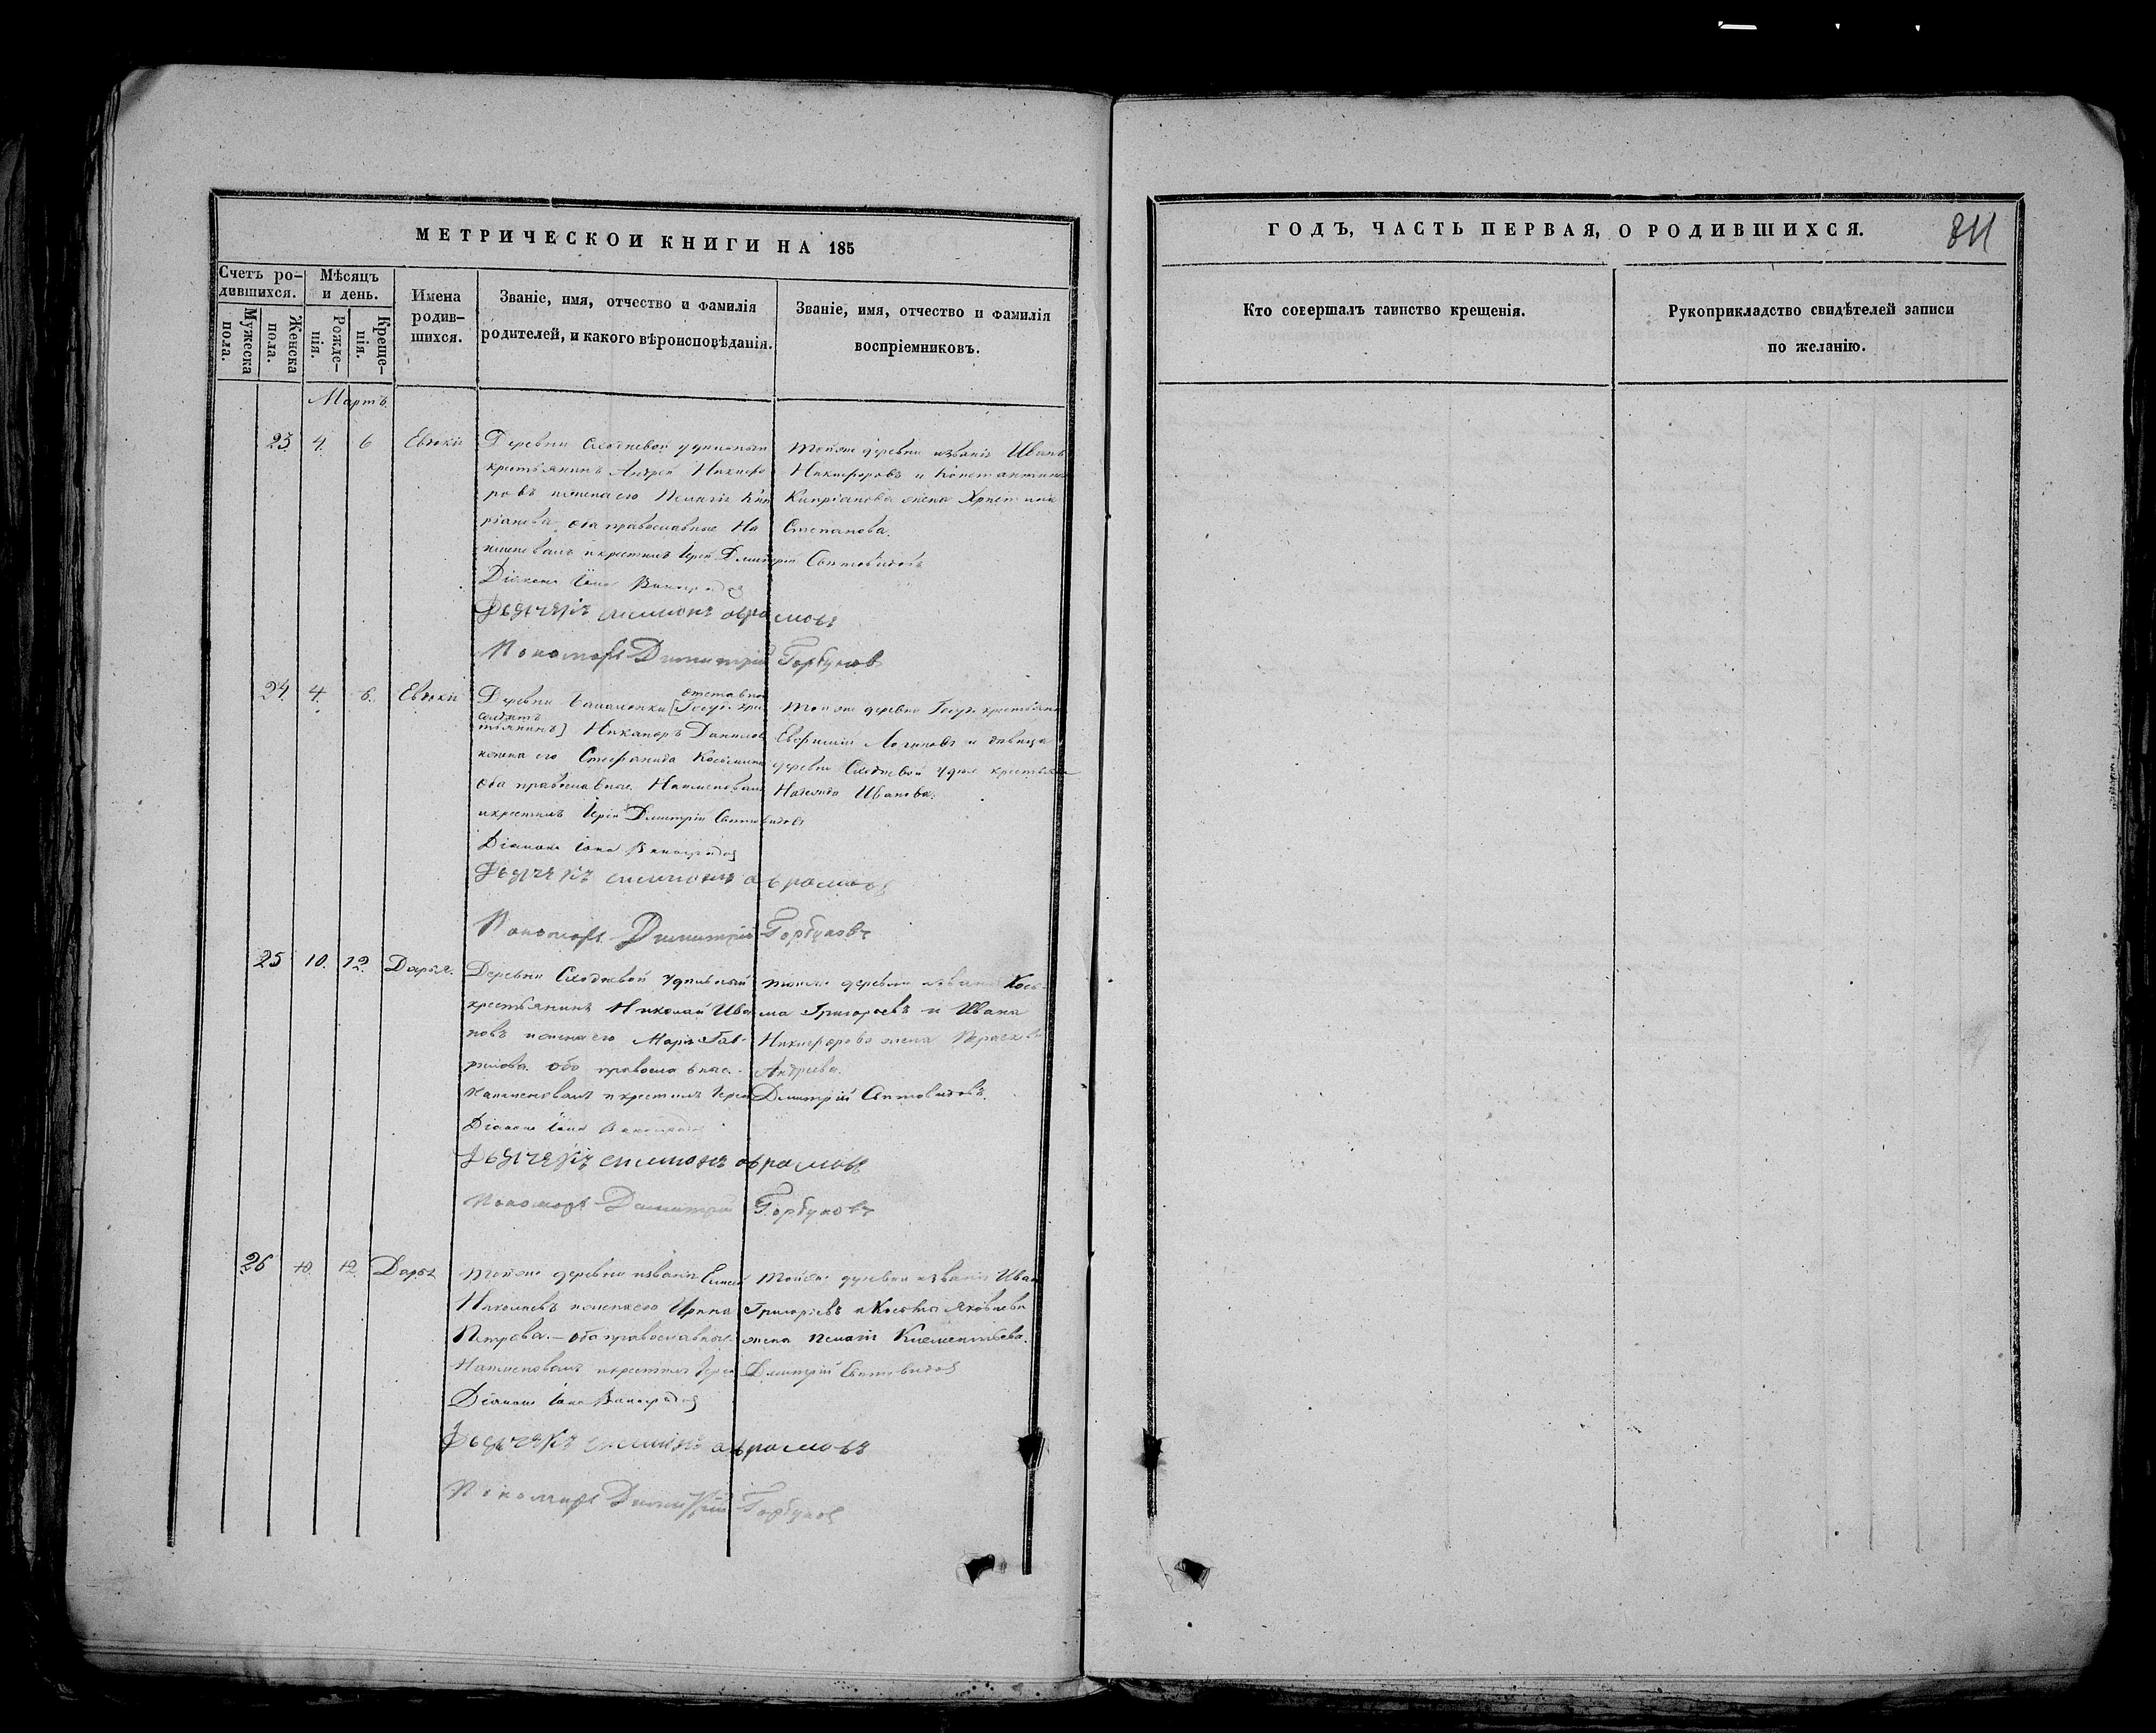 МЕТРИЧЕСКОЙ КНИГИ НА 185
Счетъ ро-
дившихся.
Мѣсяцъ
и день.
Имена
родив-
шихся.
Званіе, имя, отчество и фамилія
родителей, и какого вѣроисповѣданія.
Званіе, имя, отчество и фамилія
воспріемниковъ.
Мужеска
пола.
Женска
пола.
Рожде-
нія.
Креще-
нія.
Мартъ.
23. 4. 6 Евдокія
Деревни удѣльный
крестьянинъ Андрей Никифо
ровъ и жена его Пелагія Кип
ріанова, оба православные На
именовалъ и крестилъ Іерей Дмитрій Святовидовъ
Діаконъ Іона Виноградов
Дьячекъ симионъ аврамовъ
Пономарь Димитрій Горбунов
Тойже деревни и званія Иванъ
Никифоровъ и Константина
Кипріанова жена Христина
Степанова.
24. 4. 6. Евдокія
Деревни [Госуд. крес
отставной
солдатъ
тьянинъ] Никаноръ Данилов
и жена его Стефанида Косьмина
оба православные. Наименовалъ
и крестилъ Іерей Дмитрій Святовидовъ
Діаконъ Іона Виноградов
Дьячекъ симионъ аврамов
Пономарь Димитрій Горбуновъ
Тойже деревни Госуд. крестьянин
Евфимій Логиновъ и дѣвица
деревни удѣл крестьян
Надежда Иванова.
25 10. 12. Дарья.
Деревни удѣльный
крестьянинъ Николай Ива
новъ и жена его Марія Гав-
рилова. оба православные.
Наименовалъ и крестилъ Іерей Дмитрій Святовидовъ.
Діаконъ Іона Виноградов
Дьячекъ симионъ аврамовъ
Пономарь Димитрій Горбуновъ
Тойже деревни и званія Кось
ма Григорьевъ и Ивана
Никифорова жена Параскева
Андреева.
26 10. 12. Дарья
Тойже деревни и званія Елисей
Николаевъ и жена его Ирина
Петрова. — Оба православные.
Наименовалъ и крестилъ Іерей Дмитрій Святовидов
Діаконъ Іона Виноградов
Дьячекъ симионъ аврамовъ
Пономарь Димитрій Горбунов
Тойже деревни и званія Иван
Григорьевъ и Косьмы Яковлева
жена Пелагія Клементьева.
ГОДЪ, ЧАСТЬ ПЕРВАЯ, О РОДИВШИХСЯ.
Кто совершалъ таинство крещенія.
Рукоприкладство свидѣтелей записи
по желанію.